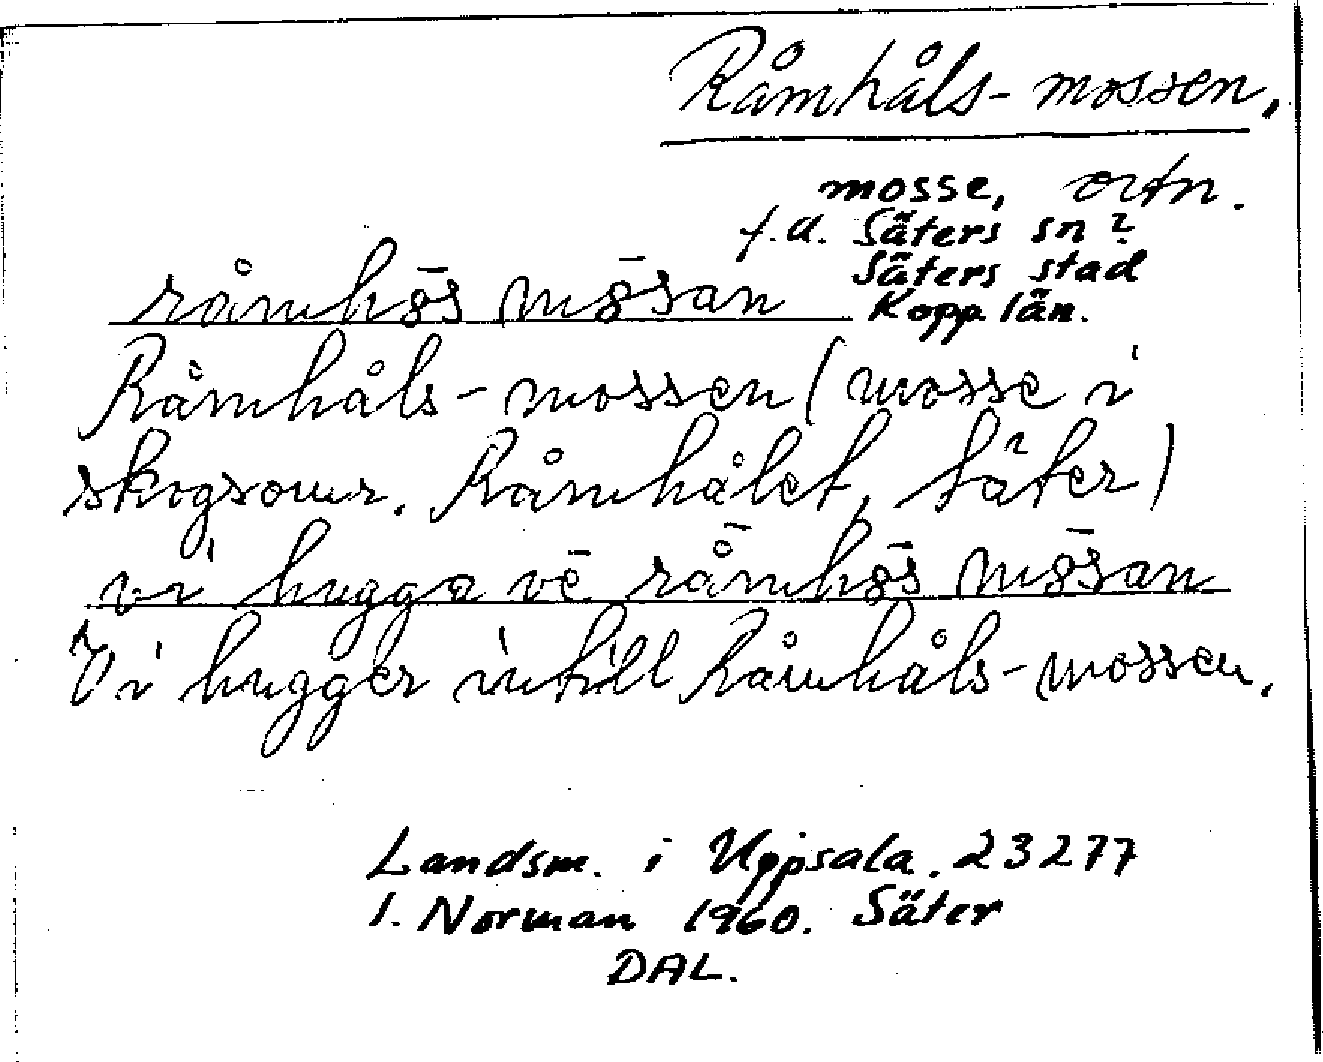 Råmhåls-mossen.
mosse, ortn.
f.d. Säters sn?
Säters stad
Kopp. län.
råmhōs mōsan
Råmhåls-mossen (mosse i
skogsomr. Råmhålet, Säter)
vi hugga vē rå̄mhōs mōsan
Vi hugger intill Råmhåls-mossen.
Landsm. i Uppsala. 23277
I. Norman 1960. Säter
DAL.